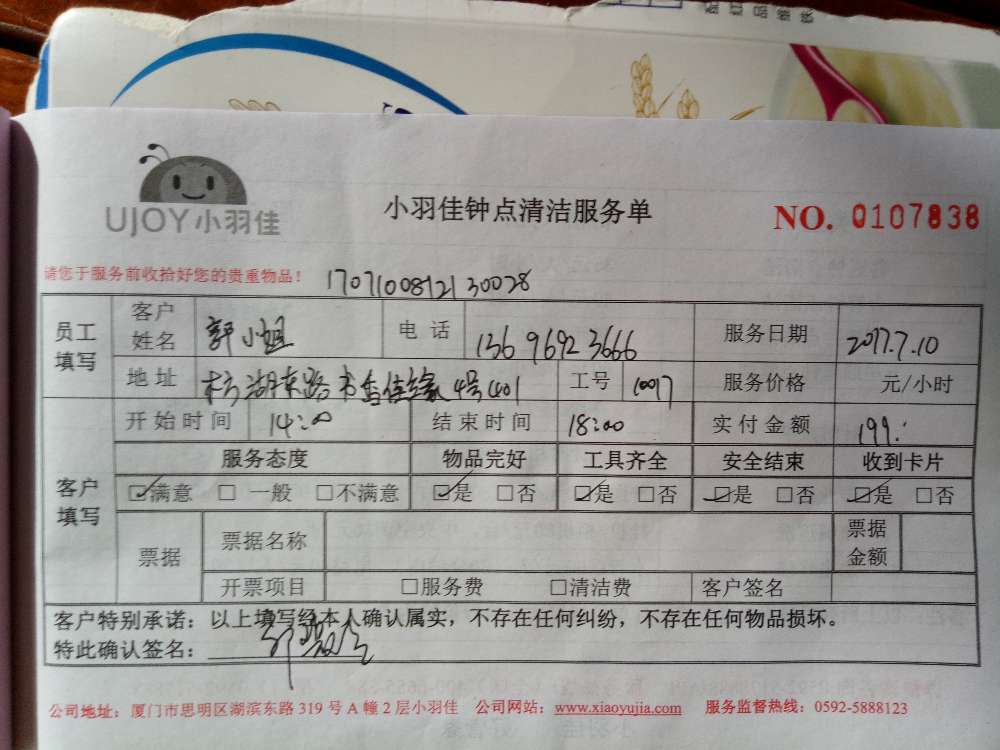 UJOY小羽佳
小羽佳钟点清洁服务单
NO. 0107838
请您于服务前收拾好您的贵重物品！ 1707100812130028
员工填写 客户姓名 郭小姐 电话 13696923666 服务日期 2017.7.10
地址 湖东路 4号401 工号 10017 服务价格 元/小时
开始时间 14:00 结束时间 18:00 实付金额 199.
客户填写 服务态度 物品完好 工具齐全 安全结束 收到卡片
☑满意 □一般 □不满意 ☑是 □否 ☑是 □否 ☑是 □否 ☑是 □否
票据 票据名称 票据金额
开票项目 □服务费 □清洁费 客户签名
客户特别承诺：以上填写经本人确认属实，不存在任何纠纷，不存在任何物品损坏。
特此确认签名：
公司地址：厦门市思明区湖滨东路 319 号 A 幢 2 层小羽佳 公司网站：www.xiaoyujia.com 服务监督热线：0592-5888123